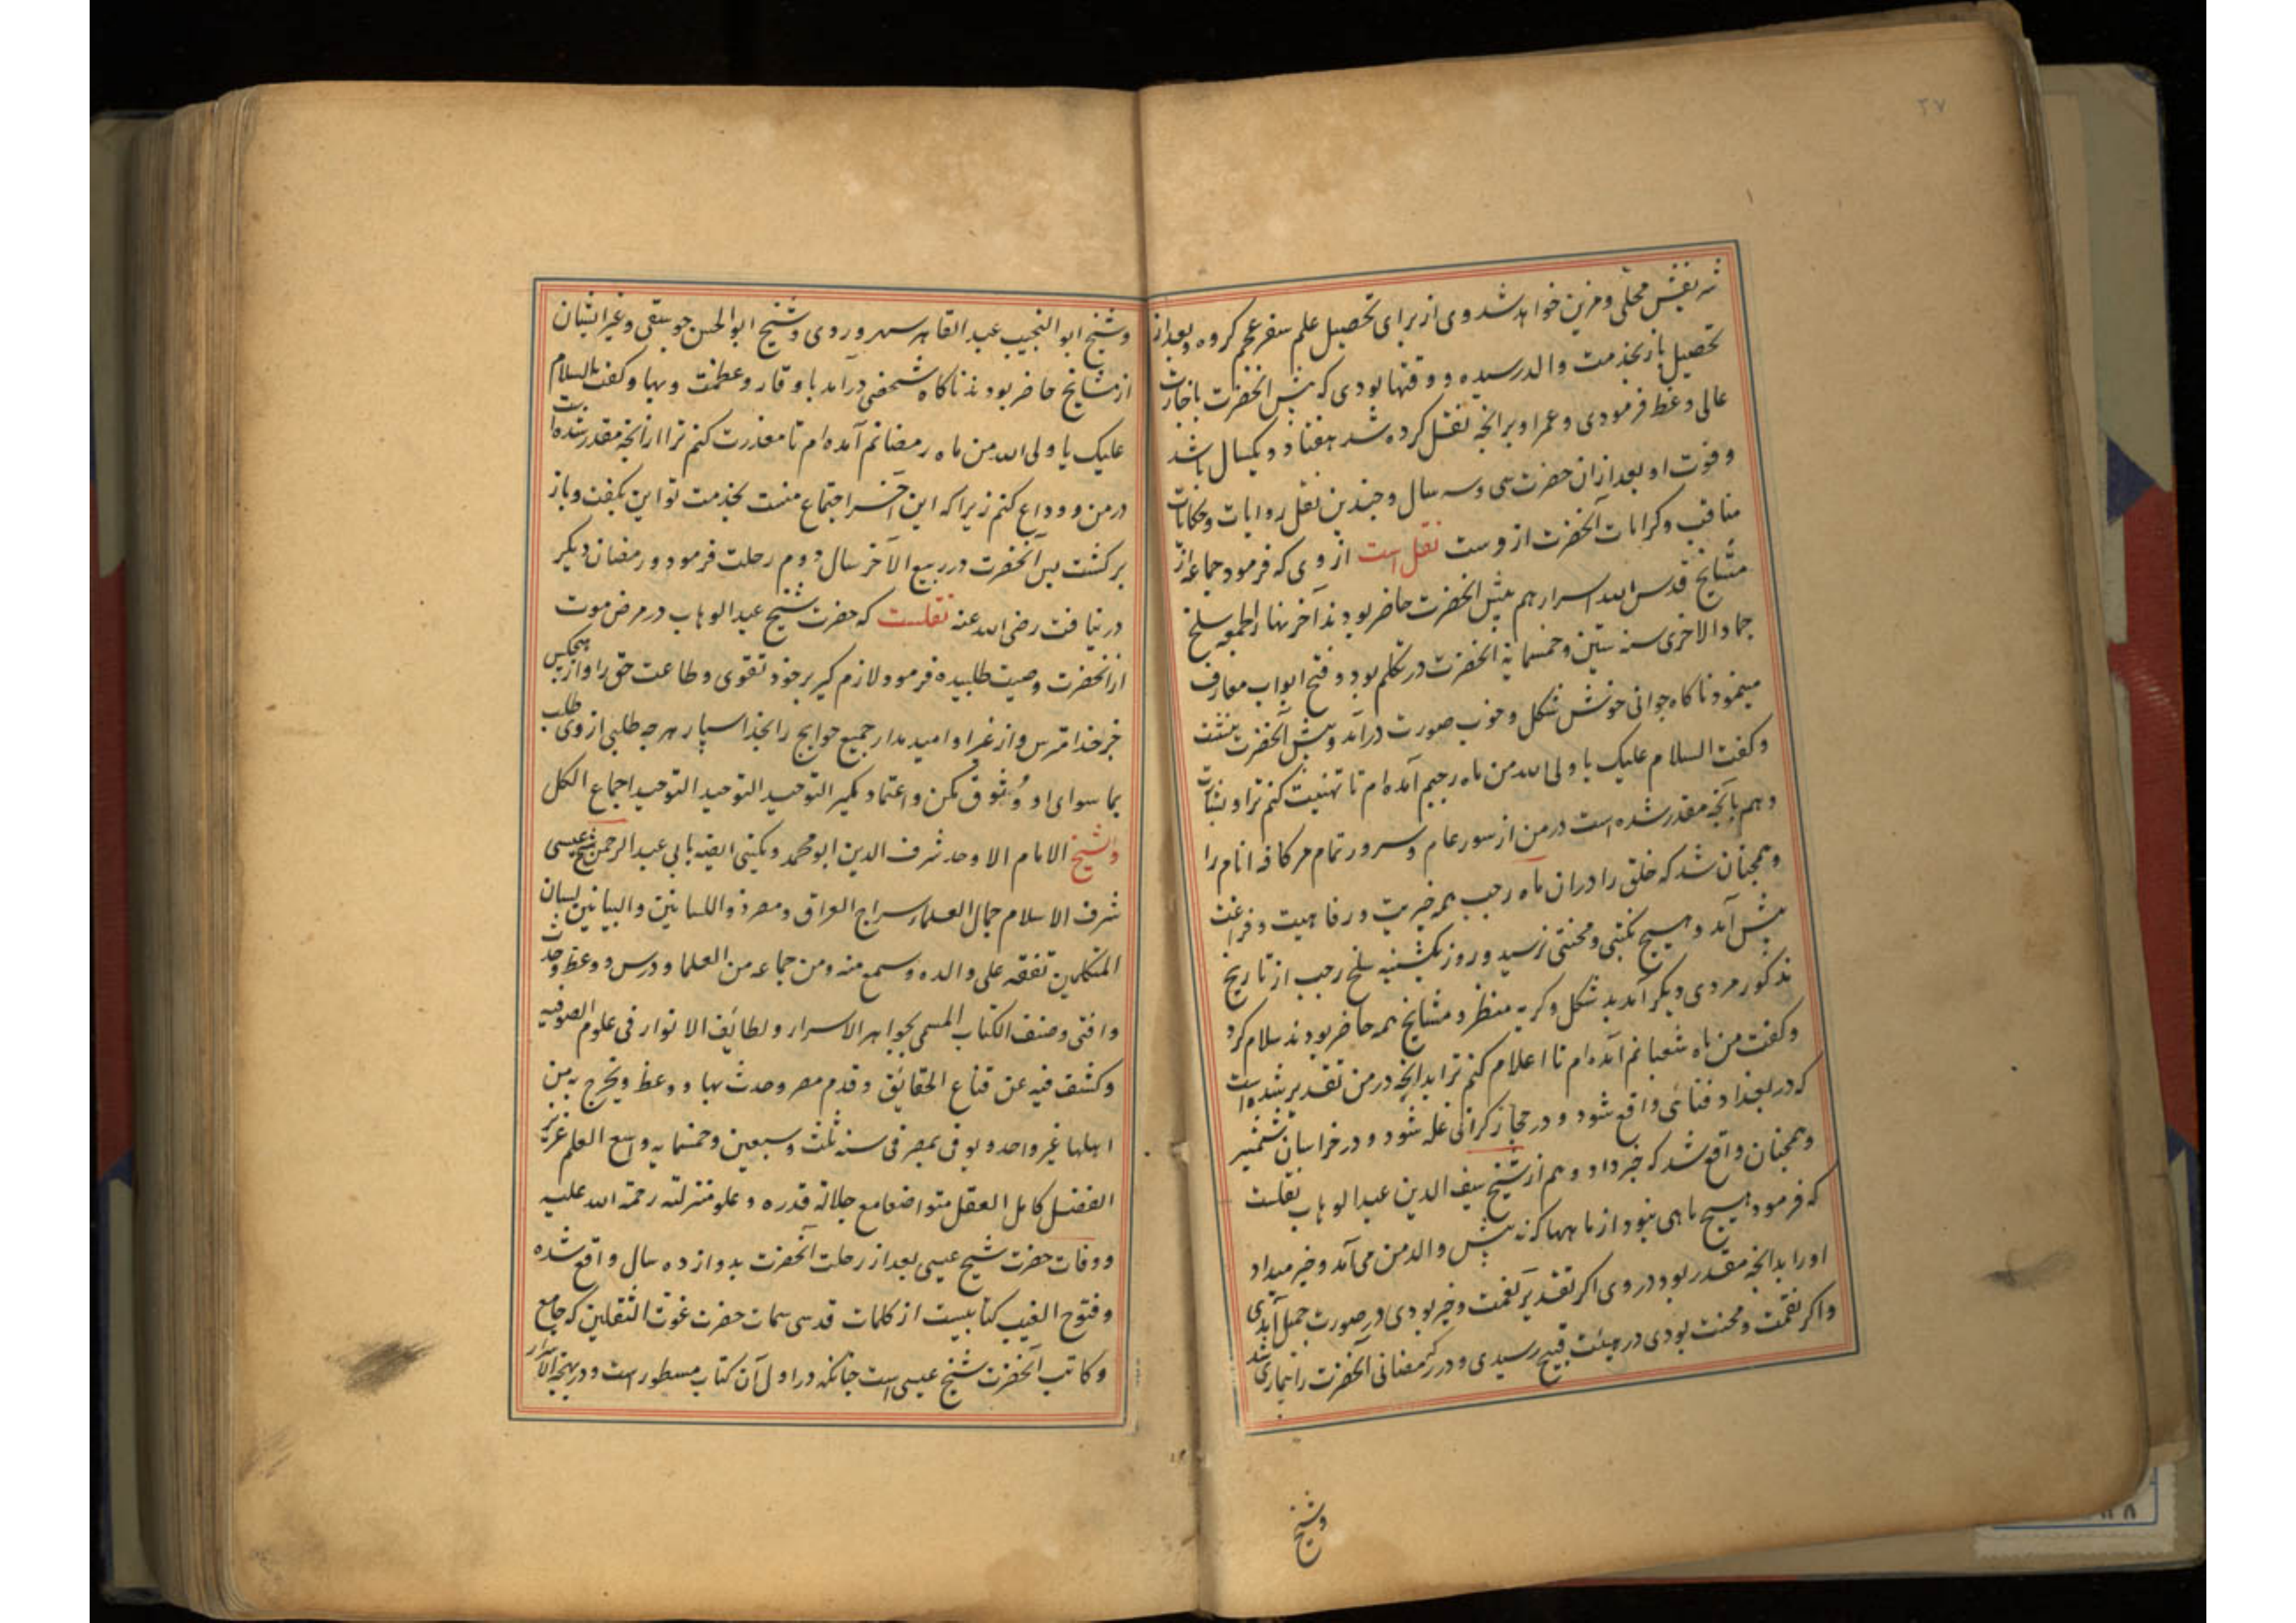 ۲۷
نفیس محلی و مزین خواهد شد وی از برای تحصیل علم سفر عجم کرده و بعد از
تحصیل باز بخدمت والد رسیده و وقتها بودی که پیش آنحضرت باجازت
عالی وعظ فرمودی و عمر او برانچه نقل کرده شد هفتاد و یکسال باشد
و فوت او بعد ازان حضرت سی و سه سال و چندین نقل روایات و حکایات
مناقب و کرامات آنحضرت از وست نقل است از وی که فرمود جماعه از
مشایخ قدس الله اسرارهم پیش آنحضرت حاضر بودند آخر نهار الجمعه سلخ
جماد الاخری سنه ستین و خمسمایة آنحضرت در تکلم بود و فتح ابواب معارف
مینمود ناکاه جوانی خوش شکل و خوب صورت درآمد و پیش آنحضرت بنشت
و کفت السلام علیک یا ولی الله من ماه رجبم آمده ام تا تهنیت کنم ترا و بشارت
دهم بانچه مقدر شده است در من از سور عام و سرور تمام مر کافه انام را
و همچنان شد که خلق را دران ماه رجب همه خیریت و رفاهیت و فراغت
پیش آمد و هیچ نکبتی و محنتی نرسید و روز یکشنبه سلخ رجب از تاریخ
مذکور مردی دیکر آمد بد شکل و کریه منظر و مشایخ همه حاضر بودند سلام کرد
و کفت من ماه شعبانم آمده ام تا اعلام کنم ترا بدانچه در من تقدیر شده است
که در بغداد فنائی واقع شود و در حجاز کرانی غله شود و در خراسان شمشیر
و همچنان واقع شد که خبر داد و هم از شیخ سیف الدین عبد الوهاب نقلست
که فرمود هیچ ماهی نبود از ماهها که نه پیش والد من می آمد و خبر میداد
او را بدانچه مقدر بود در وی اکر تقدیر نعمت و خیر بودی در صورت جمیل آمدی
و اکر نقمت و محنت بودی در هیئت قبیح رسیدی و در رمضانی آنحضرت را بیماری شد
و شیخ
و شیخ ابو النجیب عبد القاهر سهروردی و شیخ ابو الحسن جوسقی و غیر ایشان
از مشایخ حاضر بودند ناکاه شخصی درآمد با وقار و عظمت و بها و کفت السلام
علیک یا ولی الله من ماه رمضانم آمده ام تا معذرت کنم ترا از انچه مقدر شده است
در من و وداع کنم زیرا که این آخر اجتماع منست بخدمت تو این بکفت و باز
برکشت پس آنحضرت در ربیع الآخر سال دوم رحلت فرمود و رمضان دیکر
در نیافت رضی الله عنه نقلست که حضرت شیخ عبد الوهاب در مرض موت
از آنحضرت وصیت طلبیده فرمود لازم کیر بر خود تقوی و طاعت حق را و از هیچکس
جز خدا مترس و از غیر او امید مدار جمیع حوایج را بخدا سپار هر چه طلبی از وی طلب
بما سوای او وثوق مکن و اعتماد مکیر التوحید التوحید التوحید اجماع الکل
و شیخ الامام الاوحد شرف الدین ابو محمد و یکنی ایضا بابی عبد الرحمن شیخ عیسی
شرف الاسلام جمال العلماء سراج العراق و مصر ذو اللسانین و البیانین لسان
المتکلمین تفقه علی والده و سمع منه و من جماعه من العلما و درس و وعظ و حدث
و افتی و صنف الکتاب المسمی بجواهر الاسرار و لطائف الانوار فی علوم الصوفیه
و کشف فیه عن قناع الحقائق و قدم مصر و حدث بها و وعظ و تخرج به من
اهلها غیر واحد و توفی بمصر فی سنه ثلث و سبعین و خمسمایه واسع العلم غزیر
الفضل کامل العقل متواضعا مع جلالة قدره و علو منزلته رحمة الله علیه
و وفات حضرت شیخ عیسی بعد از رحلت آنحضرت بدوازده سال واقع شده
و فتوح الغیب کتابیست از کلمات قدسی سمات حضرت غوث الثقلین که جامع
و کاتب آنحضرت شیخ عیسی است چنانکه در اول آن کتاب مسطور است و در بهجة الاسرار